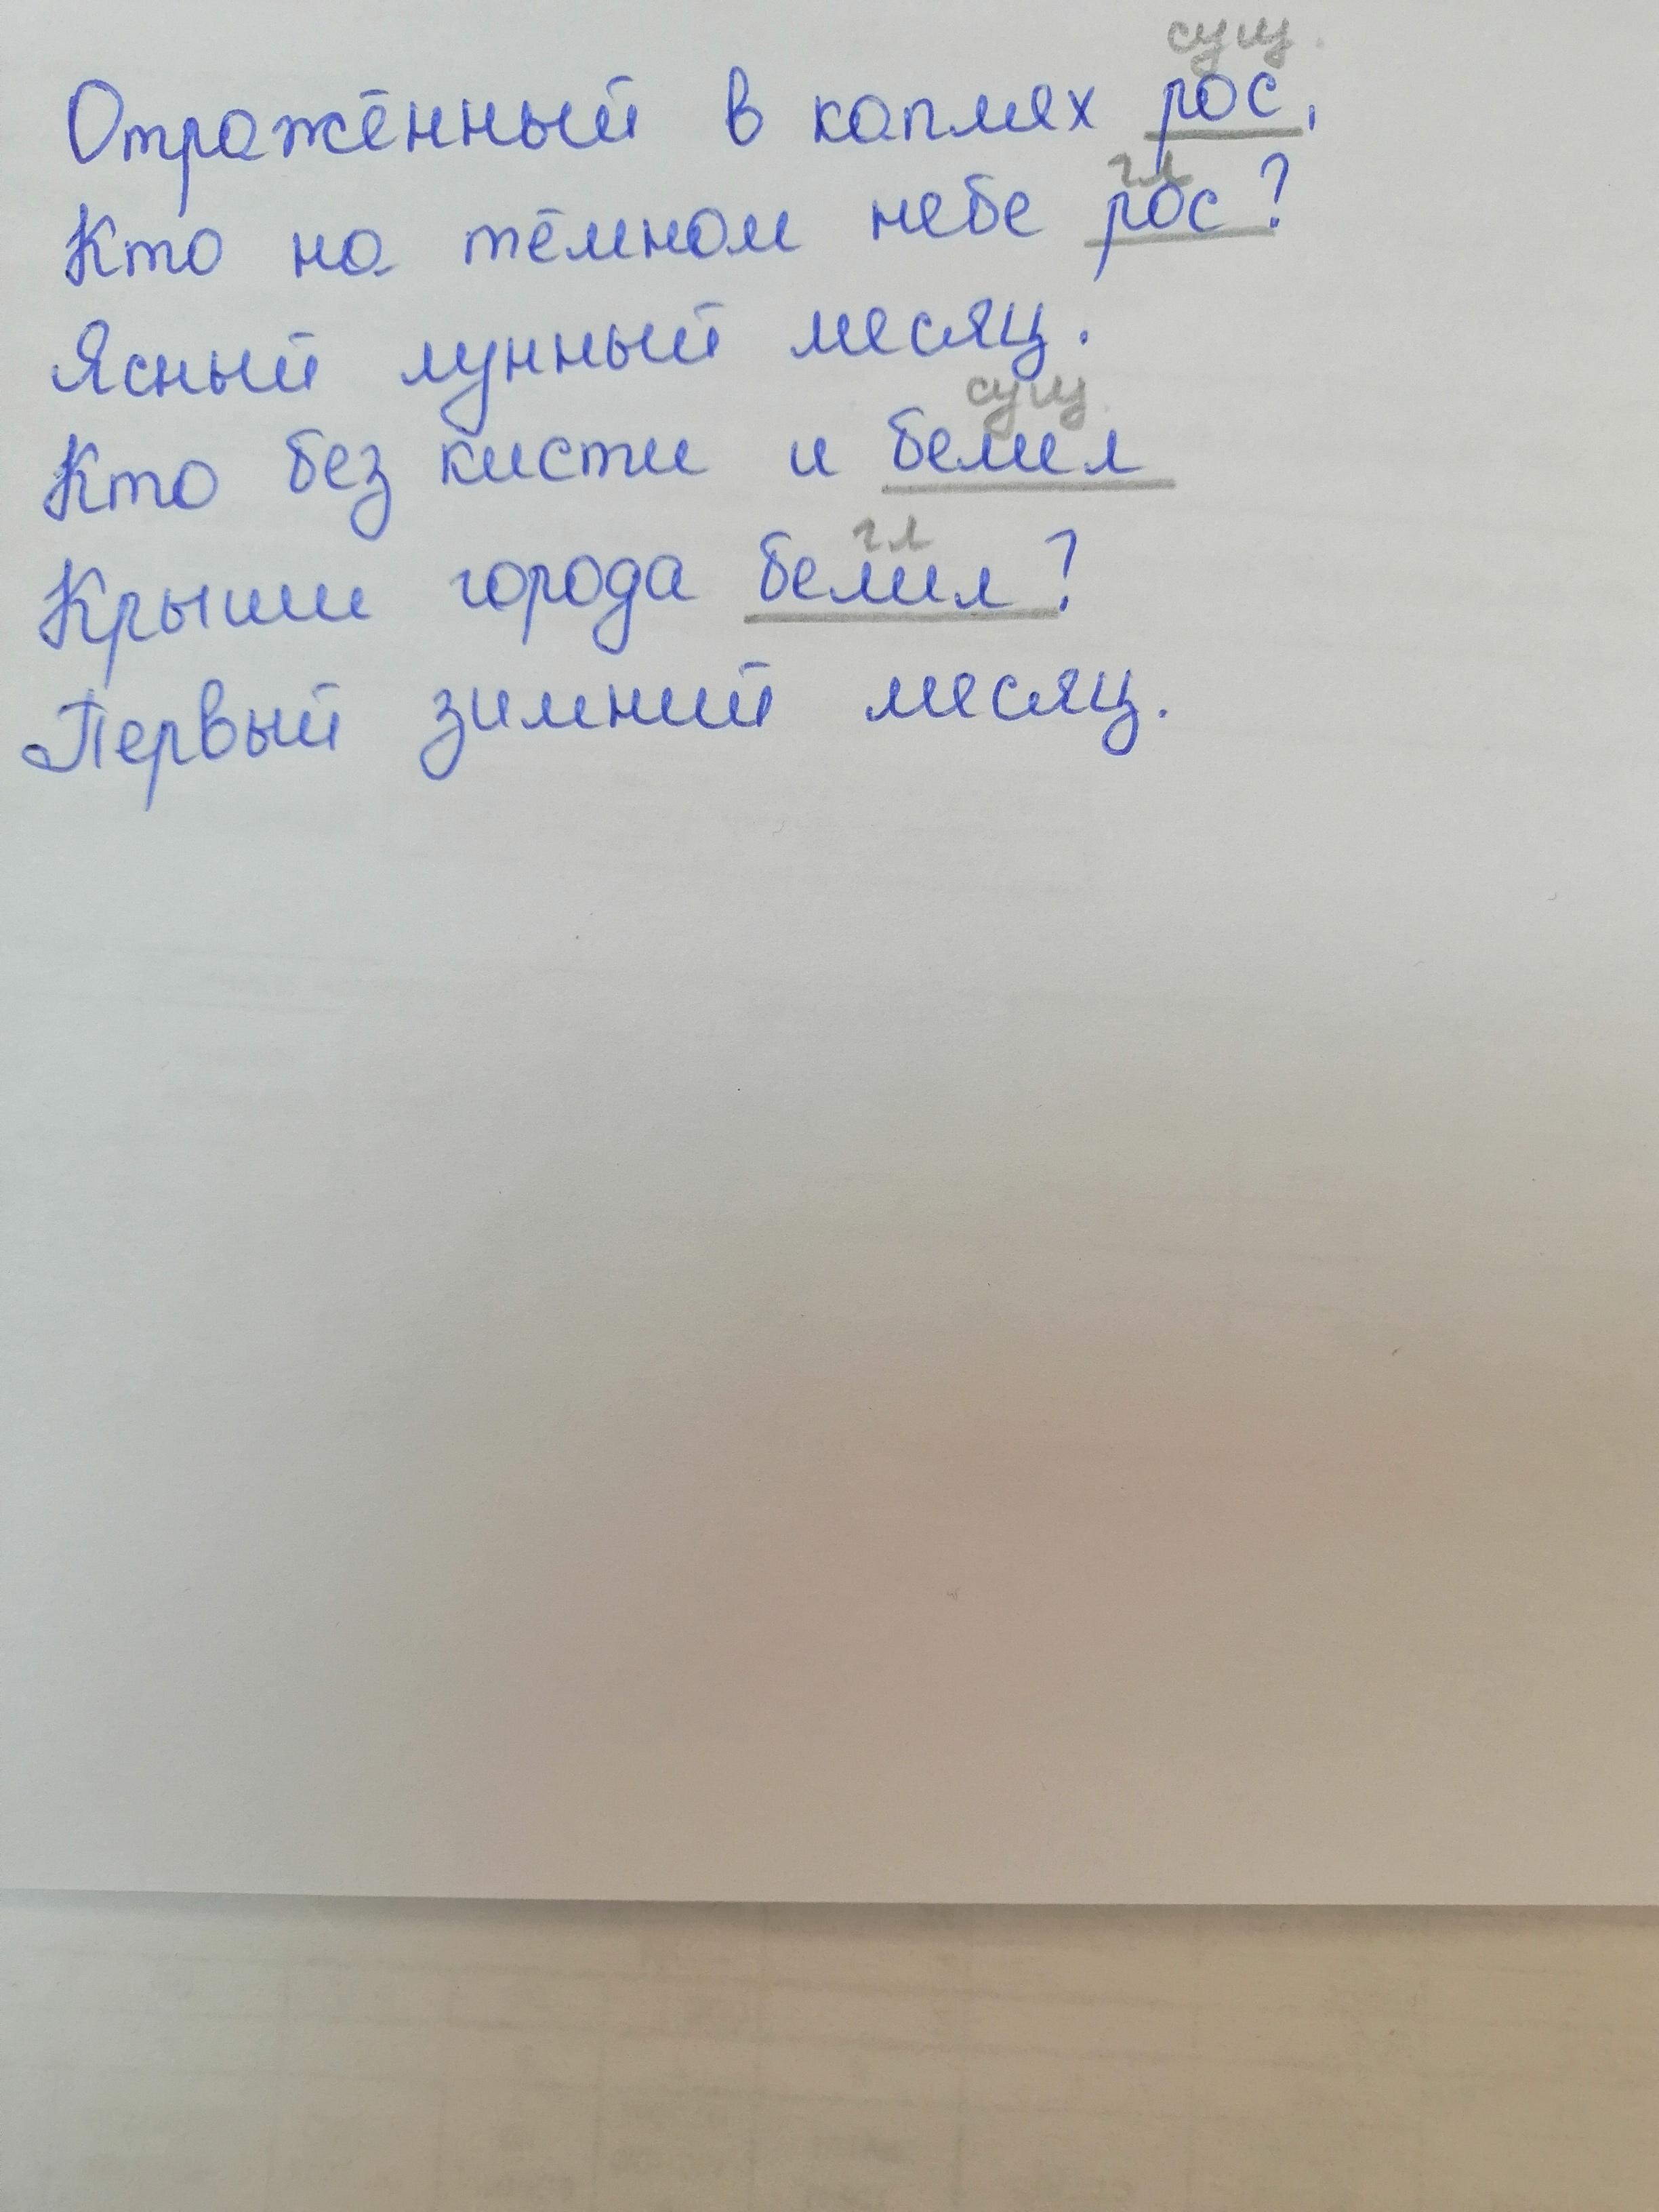 сущ.
Отражённый в каплях рос,
гл
Кто на тёмном небе рос?
Ясный лунный месяц.
сущ.
Кто без кисти и белил
гл
Крыши города белил?
Первый зимний месяц.